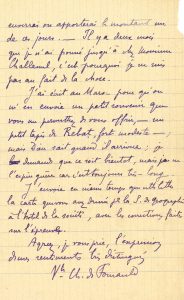 enverrai ou apporterai le montant un
de ces jours. — Il y a deux mois
que je n'ai poussé jusqu'à chez Monsieur
Challamel, c'est pourquoi je ne suis
pas au fait de la chose.
J'ai écrit au Maroc pour qu'on
m'en envoie un petit souvenir que
vous me permettrez de vous offrir, — un
petit tapis de Rabat, fort modeste —
mais Dieu sait quand il arrivera; je
demande que ce soit bientôt, mais je ne
l'espère guère car c'est toujours très-long.
J'envoie en même temps que cette lettre
la carte que vous avez donnée pr la S. de géographie
à l'hôtel de la société, avec les corrections faites
sur l'épreuve.
Agréez, je vous prie, l'expression
de mes sentiments les plus distingués
Vte Ch. de Foucauld